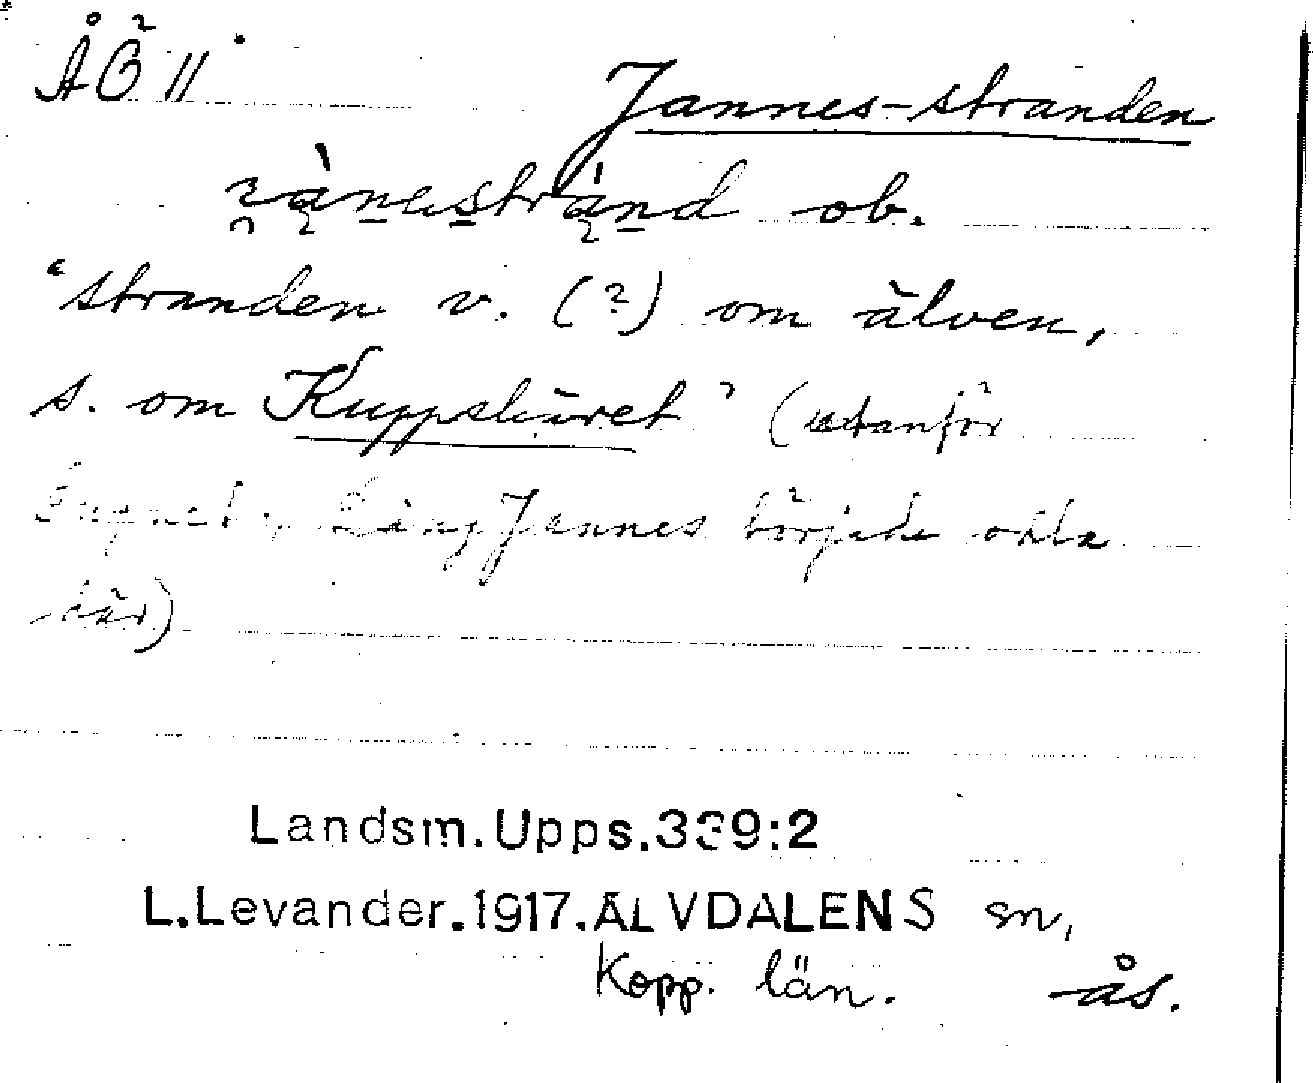 ÅÖ 11
Jannes-stranden
ob.
"stranden v. (?) om älven,
s. om Kuppskäret" (utanför
Lång Jannes började odla
där)
Landsm.Upps.339:2
L.Levander.1917.ÄLVDALENS sn,
Kopp. län. ås.